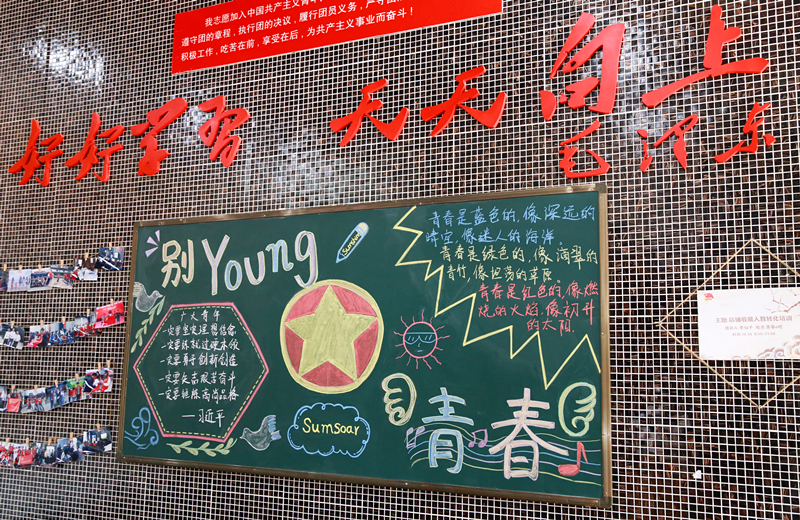 我志愿加入中国共产主义青年
遵守团的章程,执行团的决议,履行团员义务,严守团
积极工作,吃苦在前,享受在后,为共产主义事业而奋斗!
好好学习 天天向上
毛泽东
别Young
Sunshine
广大青年
一定要坚定理想信念
一定要练就过硬本领
一定要勇于创新创造
一定要矢志艰苦奋斗
一定要锤炼高尚品格
——习近平
Sumsoar
青春是蓝色的,像深远的
晴空,像迷人的海洋。
青春是绿色的,像滴翠的
青竹,像坦荡的草原。
青春是红色的,像燃
烧的火焰,像初升
的太阳.
青春